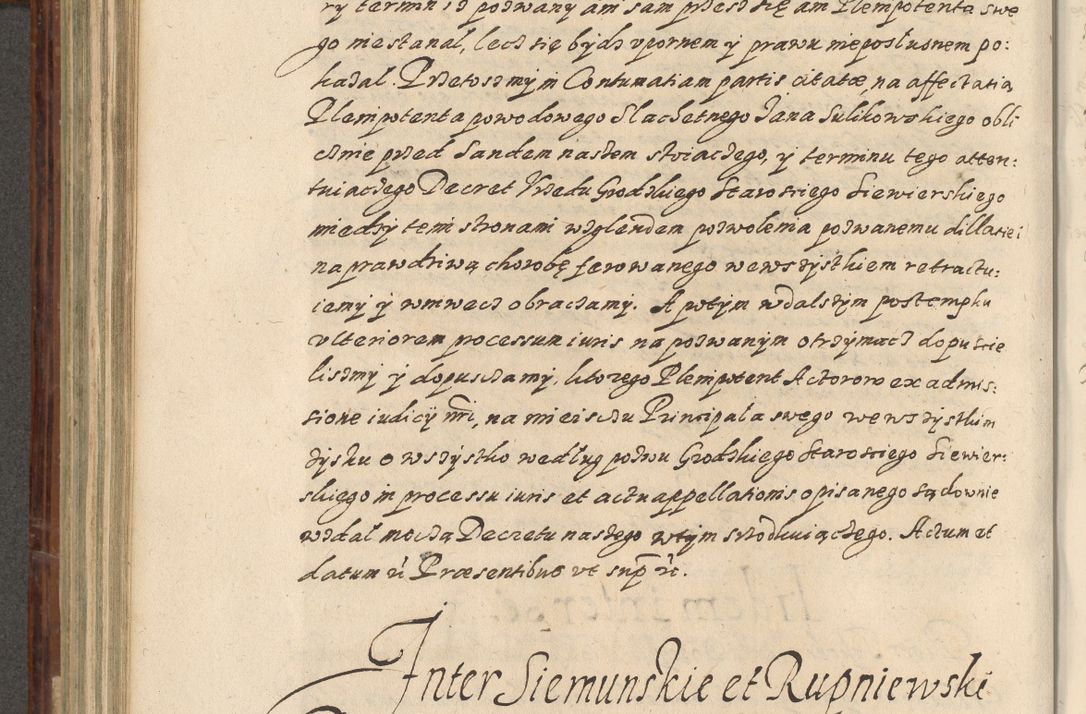 ry termin iż pozwany ani sam przez się ani Plempotenta swe
go niestanal, lecz się bydz vpornem y prawu nieposłusnem po:
kazal. Przetoż my in Contumatiam partis citatæ, na affectatią
Plempotenta powodowego Slachetnego Jana Sulikowskiego obli
cznie przed Sandem naszem stoiaczego, y terminu tego atten:
tuiaczego Decret Vrzedu Grodzkiego Starosciego Siewierskiego
miedzy temi stronami wzglendem pozwolenia pozwanemu dillatiei
na prawdziwą chorobę ferowanego we wszystkiem retractu:
iemy y wniwecz obraczamy. A wtym w dalszym postempku
vlteriorem processum iuris na pozwanym otrzymacz dopuscie
lizmy y dopusczamy, ktorego Plempotent Actorow ex admis:
sione iudicÿ nri, na mieisczu Principala swego we wszystkim
zysku o wszystko według pozwu Grodzkiego Starosciego Siewier:
skiego in processu iuris et actu appellationis opisanego sądownie
wzdal moczą Decretu naszego wtym szkoduiączego. Actum et
datum ut Præsentibus vt sup ut.
Inter Siemunskie et Rupniewski